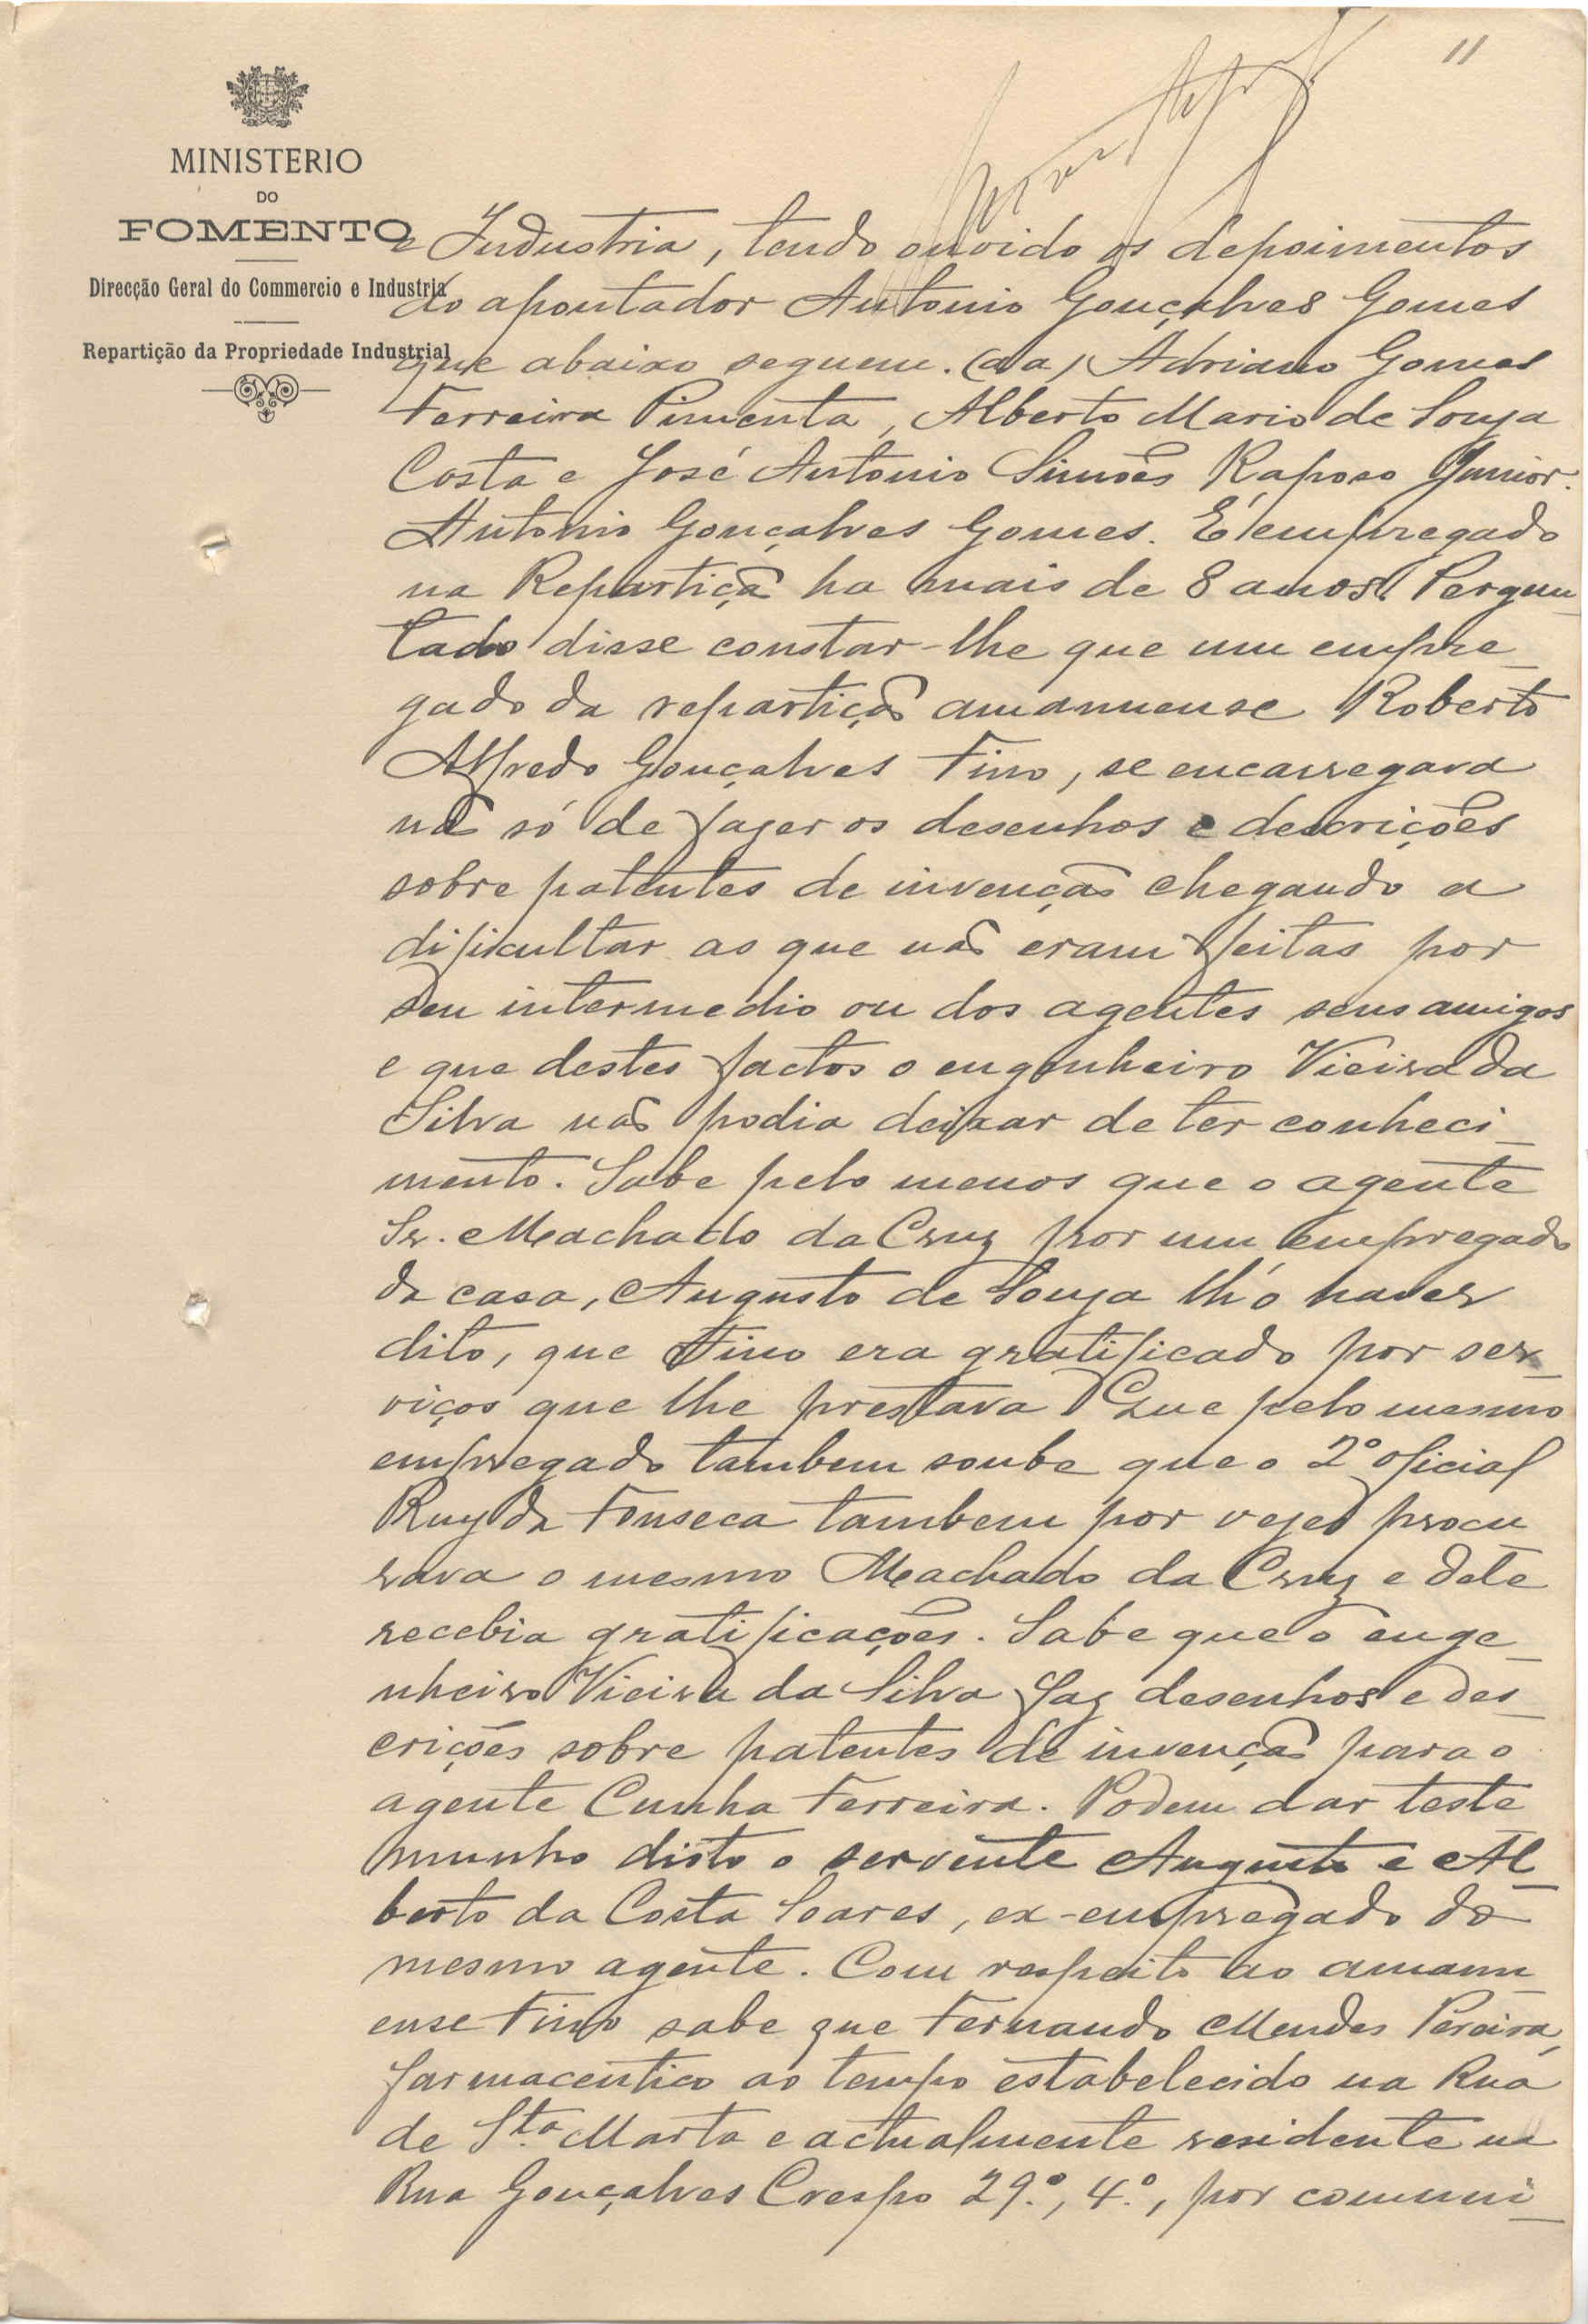 11
MINISTERIO
DO
FOMENTO
Direcção Geral do Commercio e Industria
Repartição da Propriedade Industrial
e Industria, tendo ouvido os depoimentos
do apontador Antonio Gonçalves Gomes
que abaixo seguem. (aa) Adriano Gomes
Ferreira Pimenta, Alberto Mario de Souza
Costa e José Antonio Simões Raposo Junior.
Antonio Gonçalves Gomes. É empregado
na Repartição ha mais de 8 anos. Pergun_
tado disse constar-lhe que um empre_
gado da repartição amanuense Roberto
Alfredo Gonçalves Fino, se encarregava
não só de fazer os desenhos e descrições
sobre patentes de invenção chegando a
dificultar as que não eram feitas por
seu intermedio ou dos agentes seus amigos
e que destes factos o engenheiro Vieira da
Silva não podia deixar de ter conheci_
mento. Sabe pelo menos que o agente
Sr. Machado da Cruz por um empregado
da casa, Augusto de Souza lh'o haver
dito, que Fino era gratificado por ser_
viços que lhe prestava Que pelo mesmo
empregado tambem soube que o 2º oficial
Ruy da Fonseca tambem por vezes procu
rava o mesmo Machado da Cruz e dele
recebia gratificações. Sabe que o enge_
nheiro Vieira da Silva faz desenhos e des_
crições sobre patentes de invenção para o
agente Cunha Ferreira. Podem dar teste
munho disto o servente Augusto e Al_
berto da Costa Soares, ex-empregado do
mesmo agente. Com respeito ao amanu_
ense Fino sabe que Fernando Mendes Pereira,
farmaceutico ao tempo estabelecido na Rua
de Sta. Marta e actualmente residente na
Rua Gonçalves Crespo 29.º, 4.º, por communi_